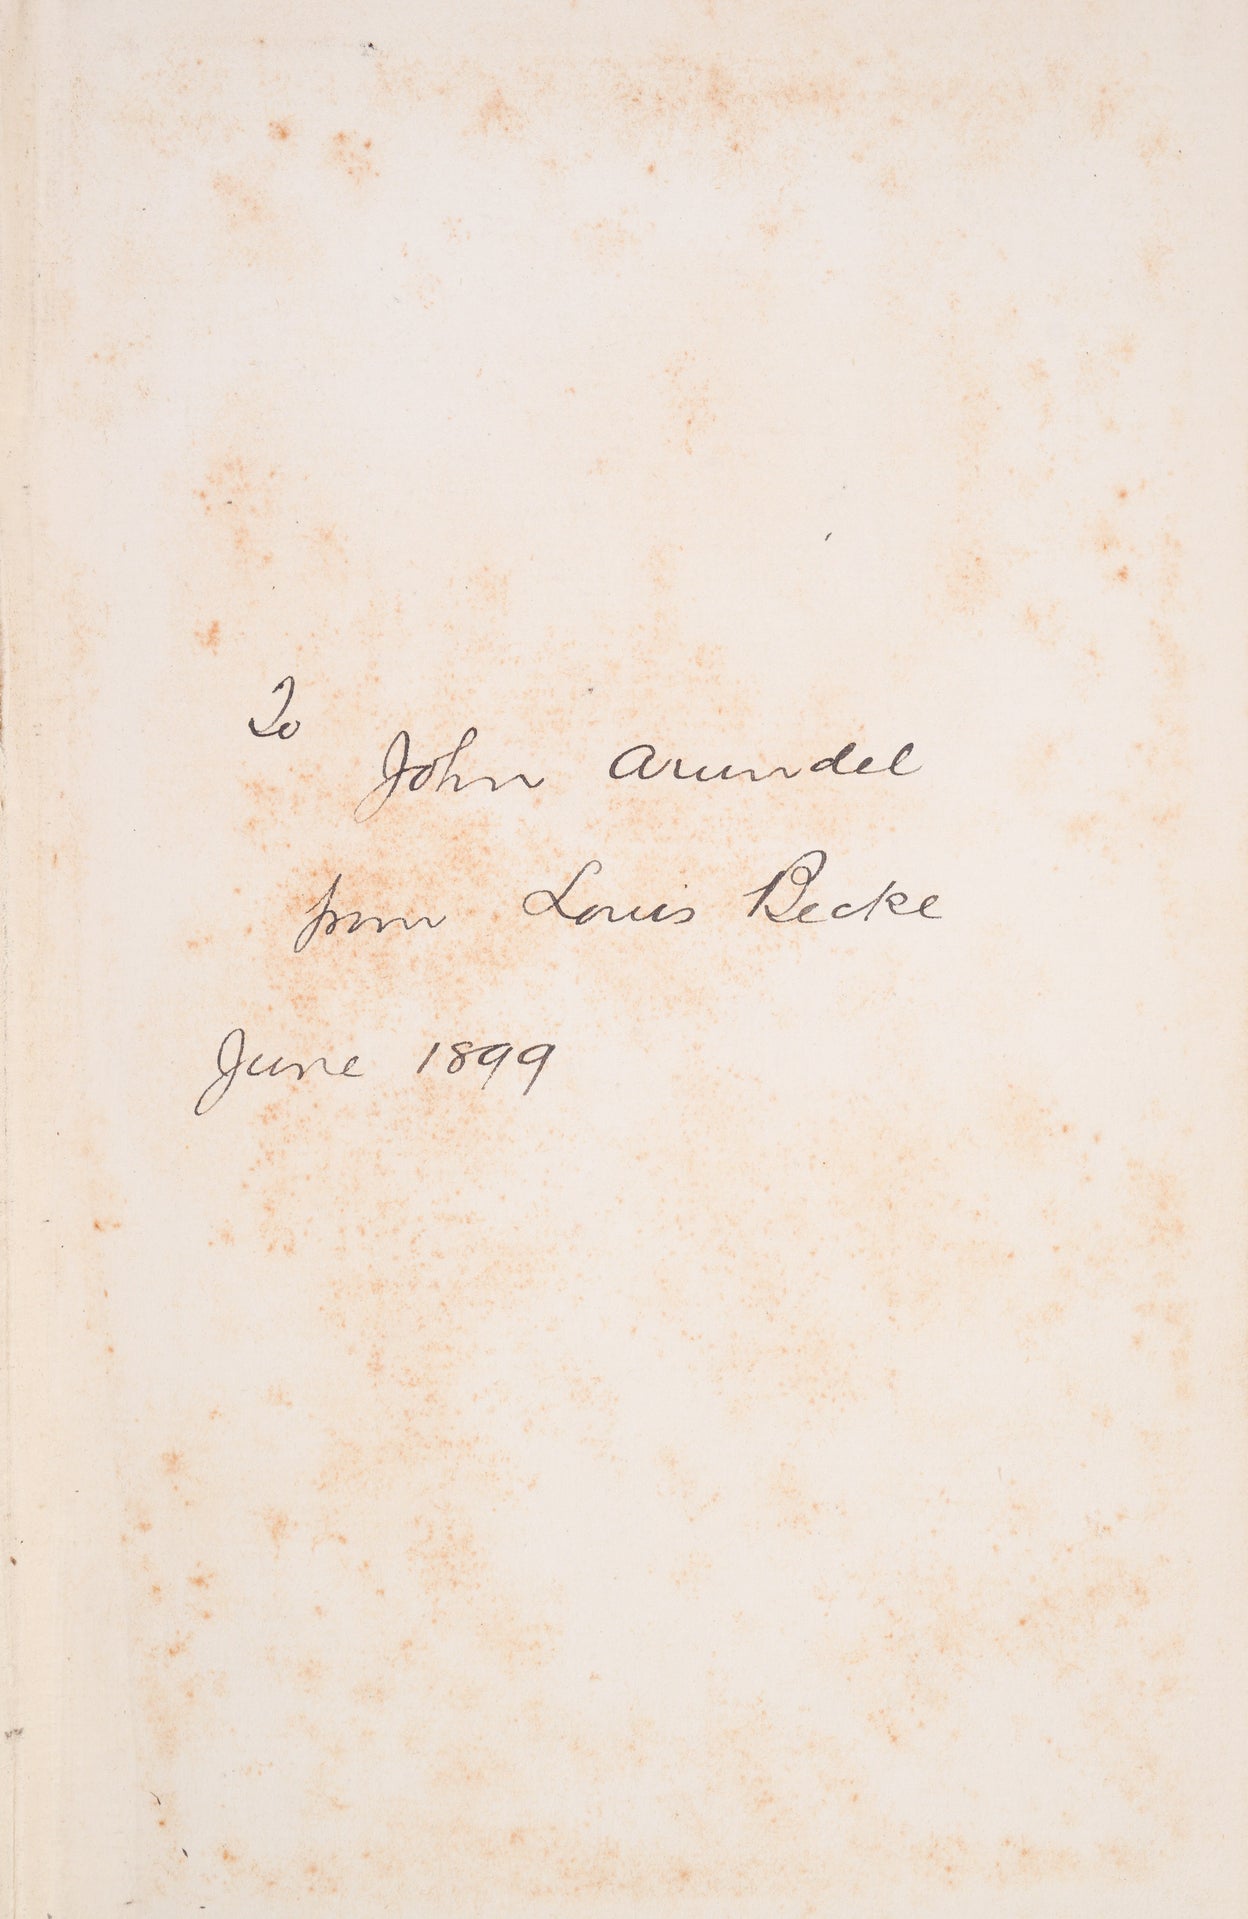 To
John Arundel
from Louis Becke
June 1899